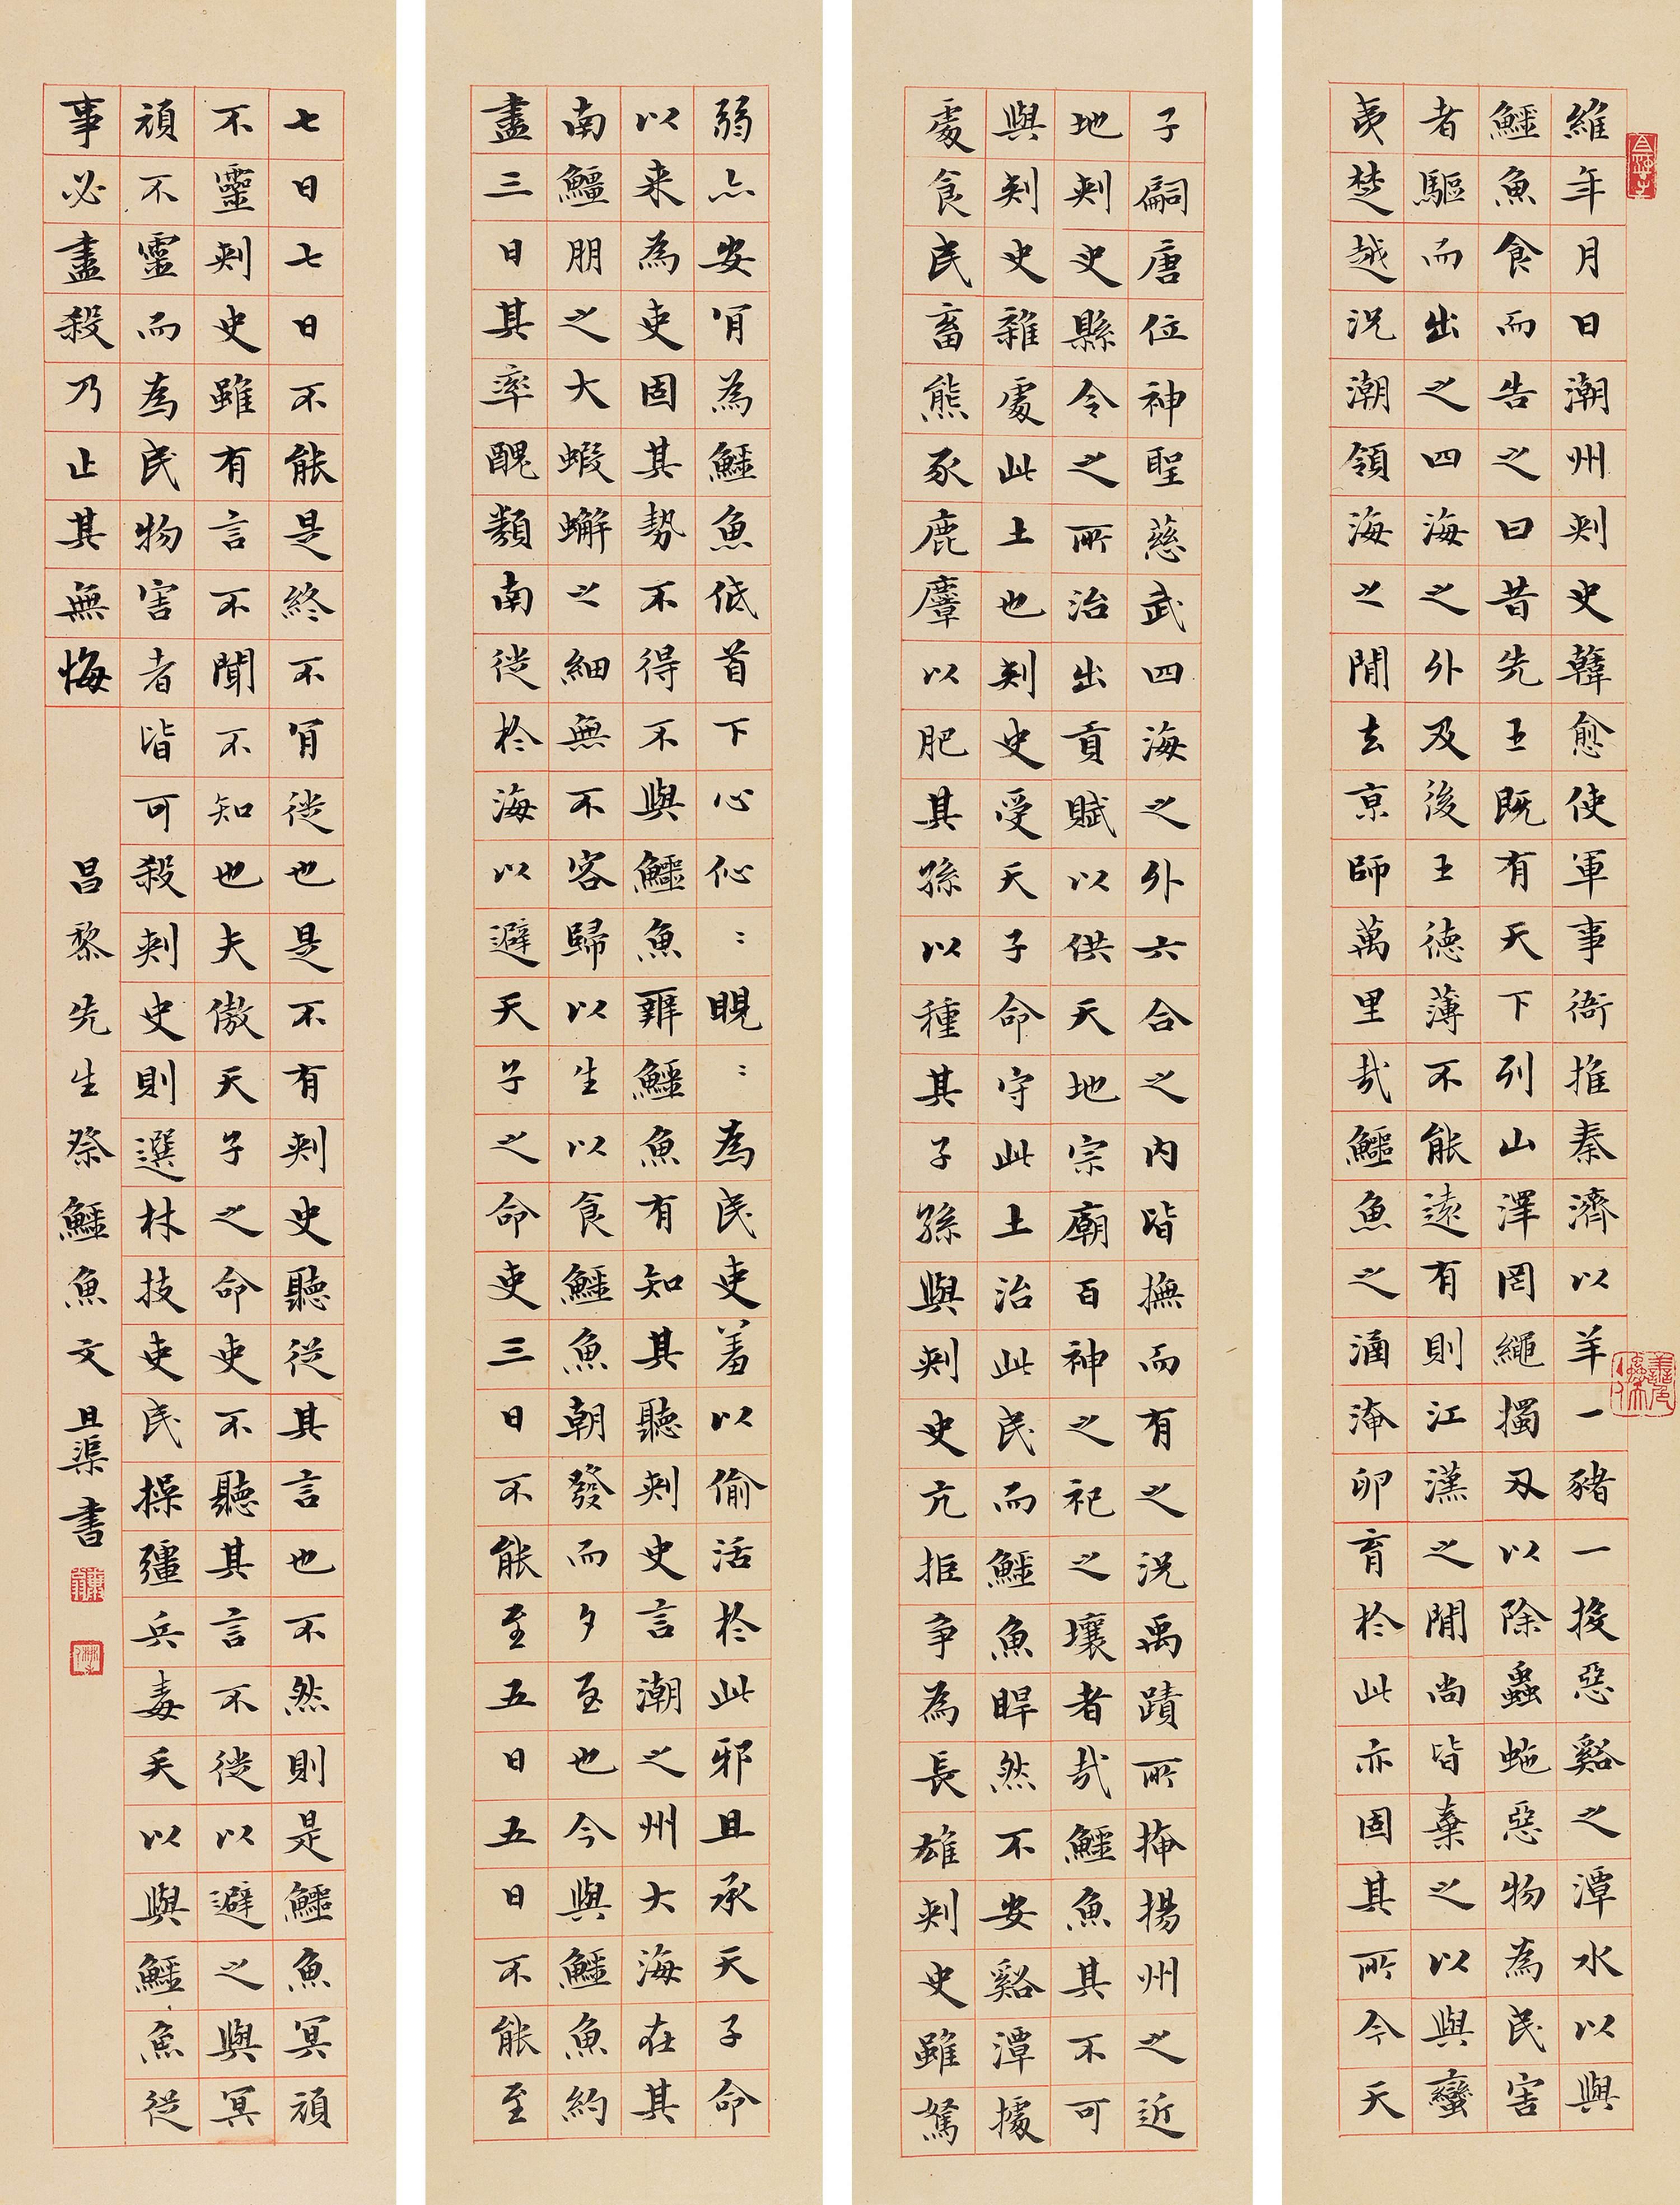 維年月日潮州刺史韓愈使軍事衙推秦濟以羊一豬一投惡谿之潭水以與
鱷魚食而告之曰昔先王既有天下列山澤罔繩擉刃以除蟲虵惡物為民害
者驅而出之四海之外及後王德薄不能遠有則江漢之間尚皆棄之以與蠻
夷楚越況潮領海之間去京師萬里哉鱷魚之涵淹卵育於此亦固其所今天
子嗣唐位神聖慈武四海之外六合之內皆撫而有之況禹蹟所揜揚州之近
地刺史縣令之所治出貢賦以供天地宗廟百神之祀之壤者哉鱷魚其不可
與刺史雜處此土也刺史受天子命守此土治此民而鱷魚睅然不安谿潭據
處食民畜熊豕鹿麞以肥其孫以種其子孫與刺史亢拒爭為長雄刺史雖駑
弱亦安肯為鱷魚低首下心伈：睍：為民吏羞以偷活於此邪且承天子命
以来為吏固其勢不得不與鱷魚辨鱷魚有知其聽刺史言潮之州大海在其
南鱷朋之大蝦蠏之細無不容歸以生以食鱷魚朝發而夕至也今與鱷魚約
盡三日其率醜類南徙於海以避天子之命吏三日不能至五日五日不能至
七日七日不能是終不肯徙也是不有刺史聽從其言也不然則是鱷魚冥頑
不靈刺史雖有言不聞不知也夫傲天子之命吏不聽其言不徙以避之與冥
頑不靈而為民物害者皆可殺刺史則選材技吏民操彊兵毒矢以與鱷魚從
事必盡殺乃止其無悔
昌黎先生祭鱷魚文 且渠書